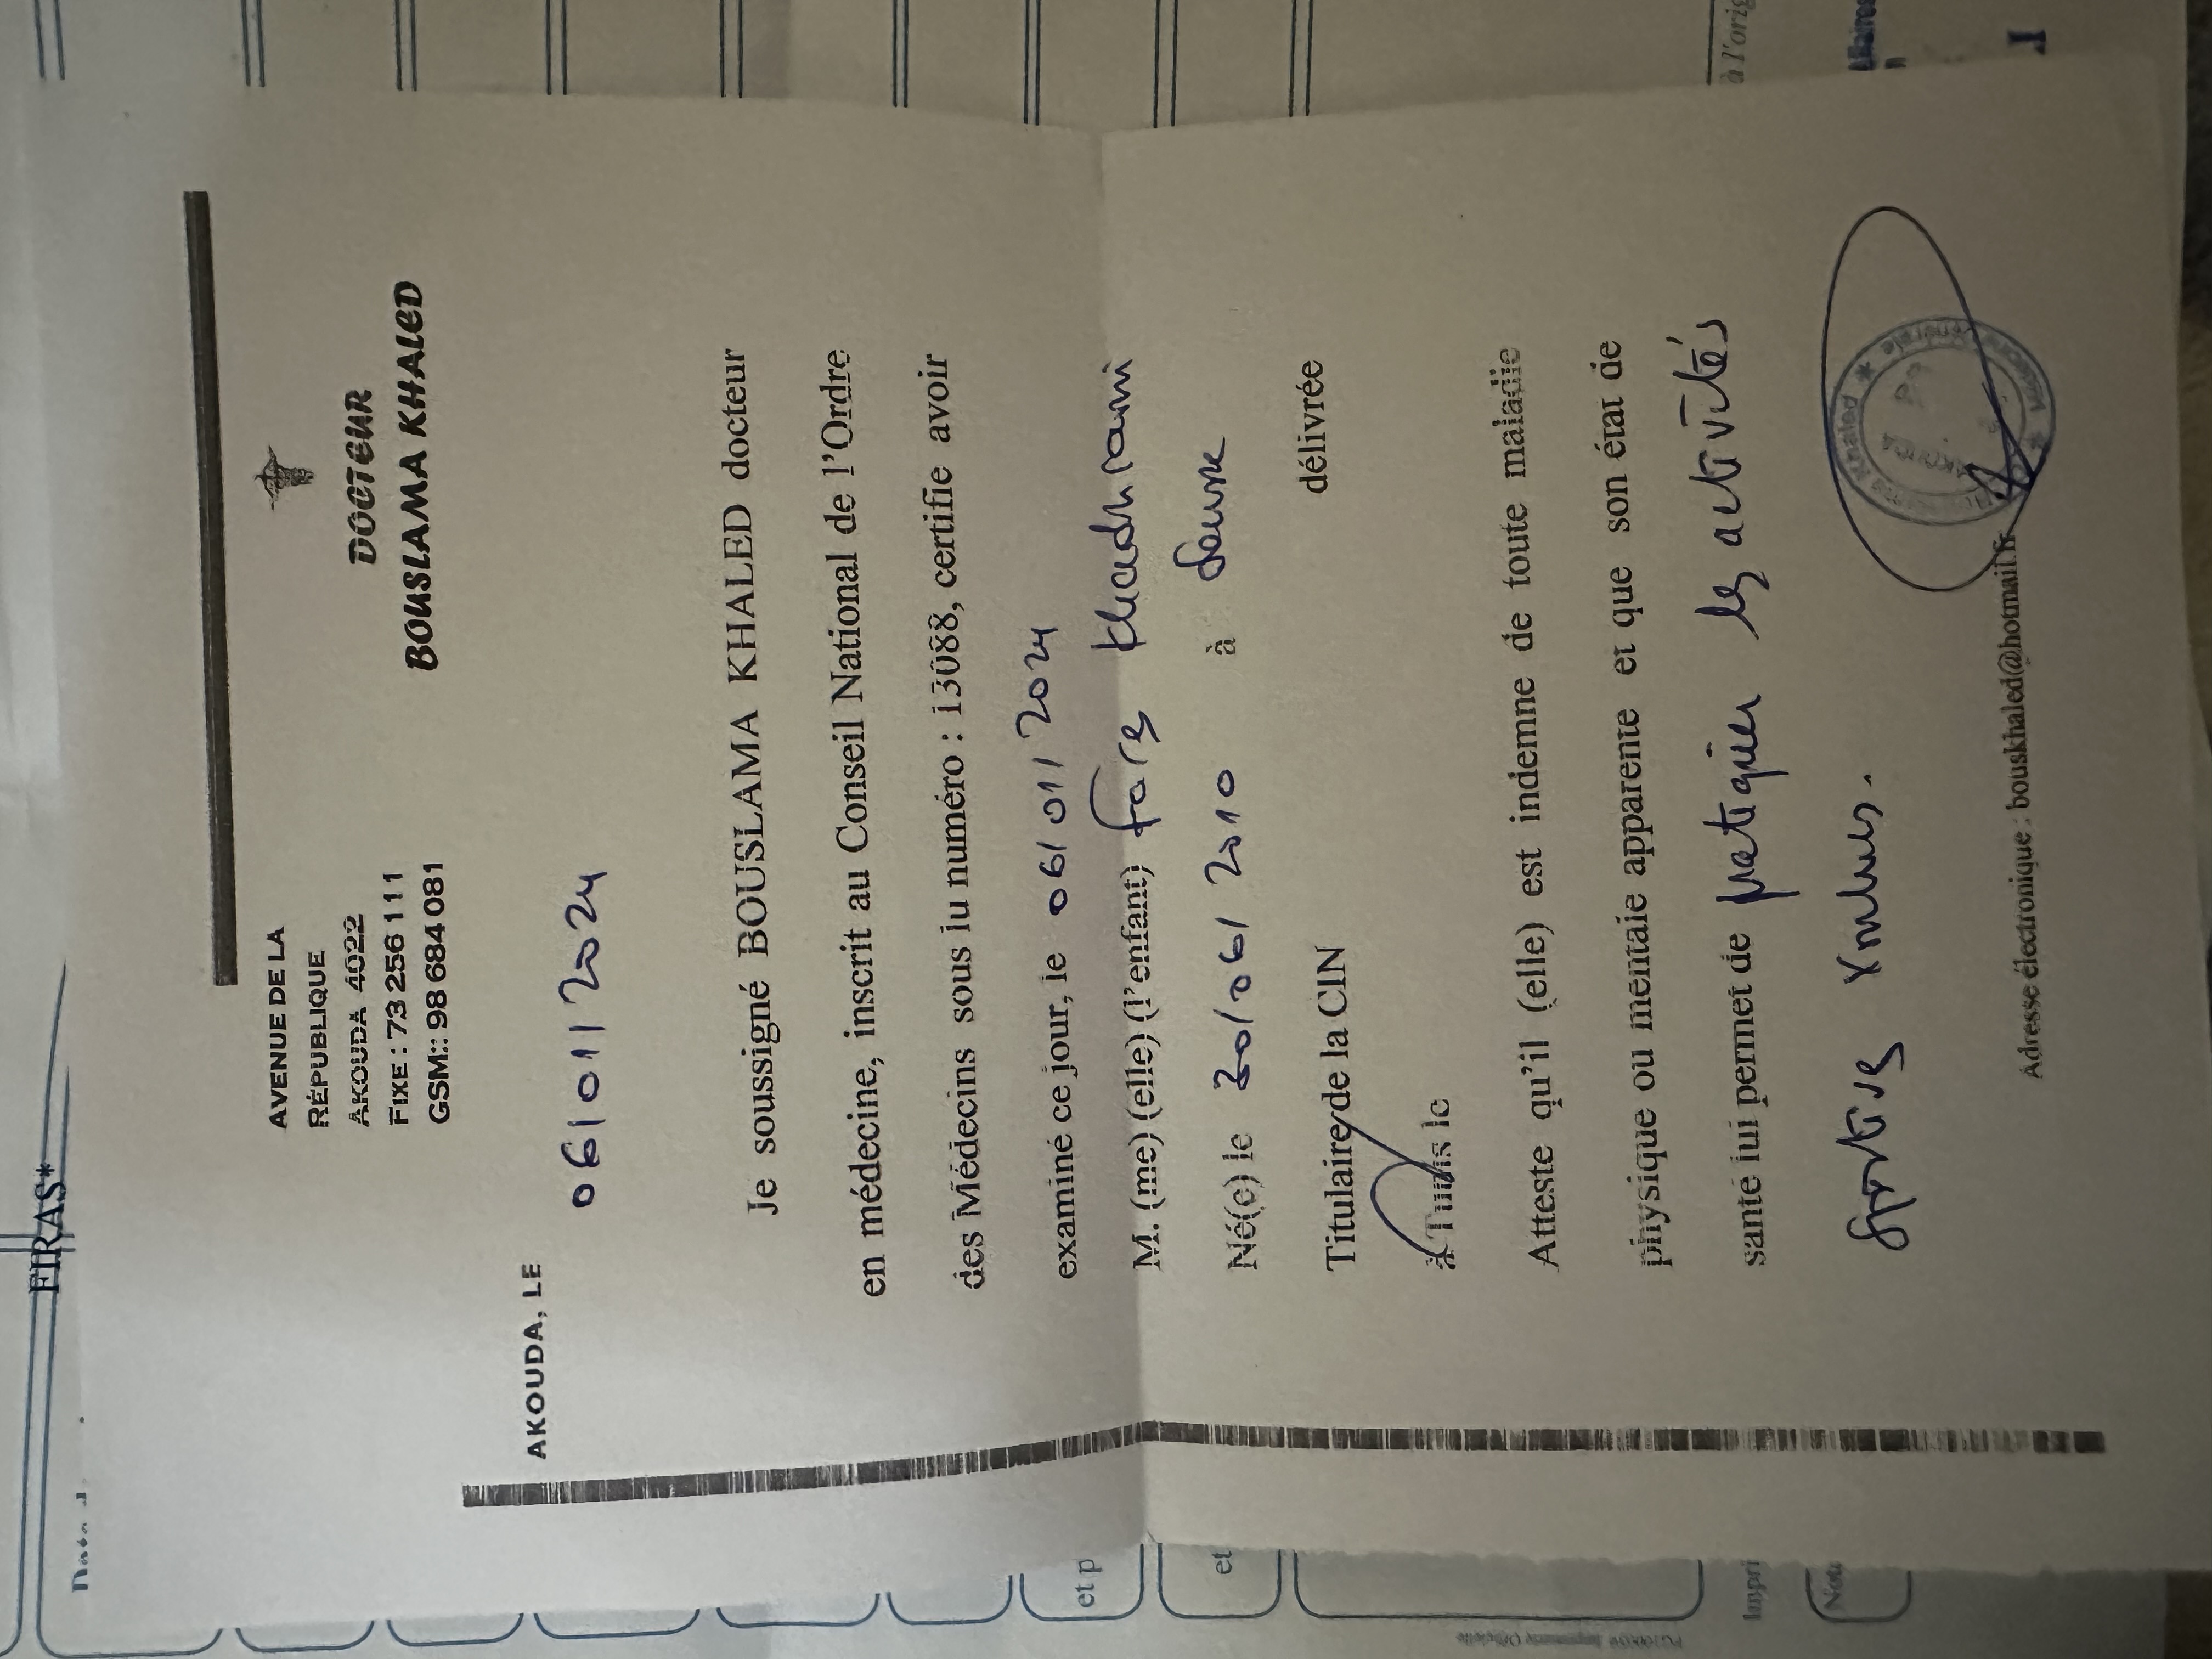 FIRAS*
AVENUE DE LA
RÉPUBLIQUE
AKOUDA 4022
FIXE : 73 256 111
GSM:: 98 684 081
DOCTEUR
BOUSLAMA KHALED
AKOUDA, LE
06/01/2024
Je soussigné BOUSLAMA KHALED docteur
en médecine, inscrit au Conseil National de l'Ordre
des Médecins sous lu numéro : 13088, certifie avoir
examiné ce jour, le 06/01/2024
M. (me) (elle) (l'enfant) Fares Khadhraoui
Né(e) le 30/06/2010 à Sousse
Titulaire de la CIN délivrée
à Tunis le
Atteste qu'il (elle) est indemne de toute maladie
physique ou mentale apparente et que son état de
santé lui permet de pratiquer les activités
sportives
Adresse électronique : bouskhaled@hotmail.fr
à l'orig
et p
et
Impri